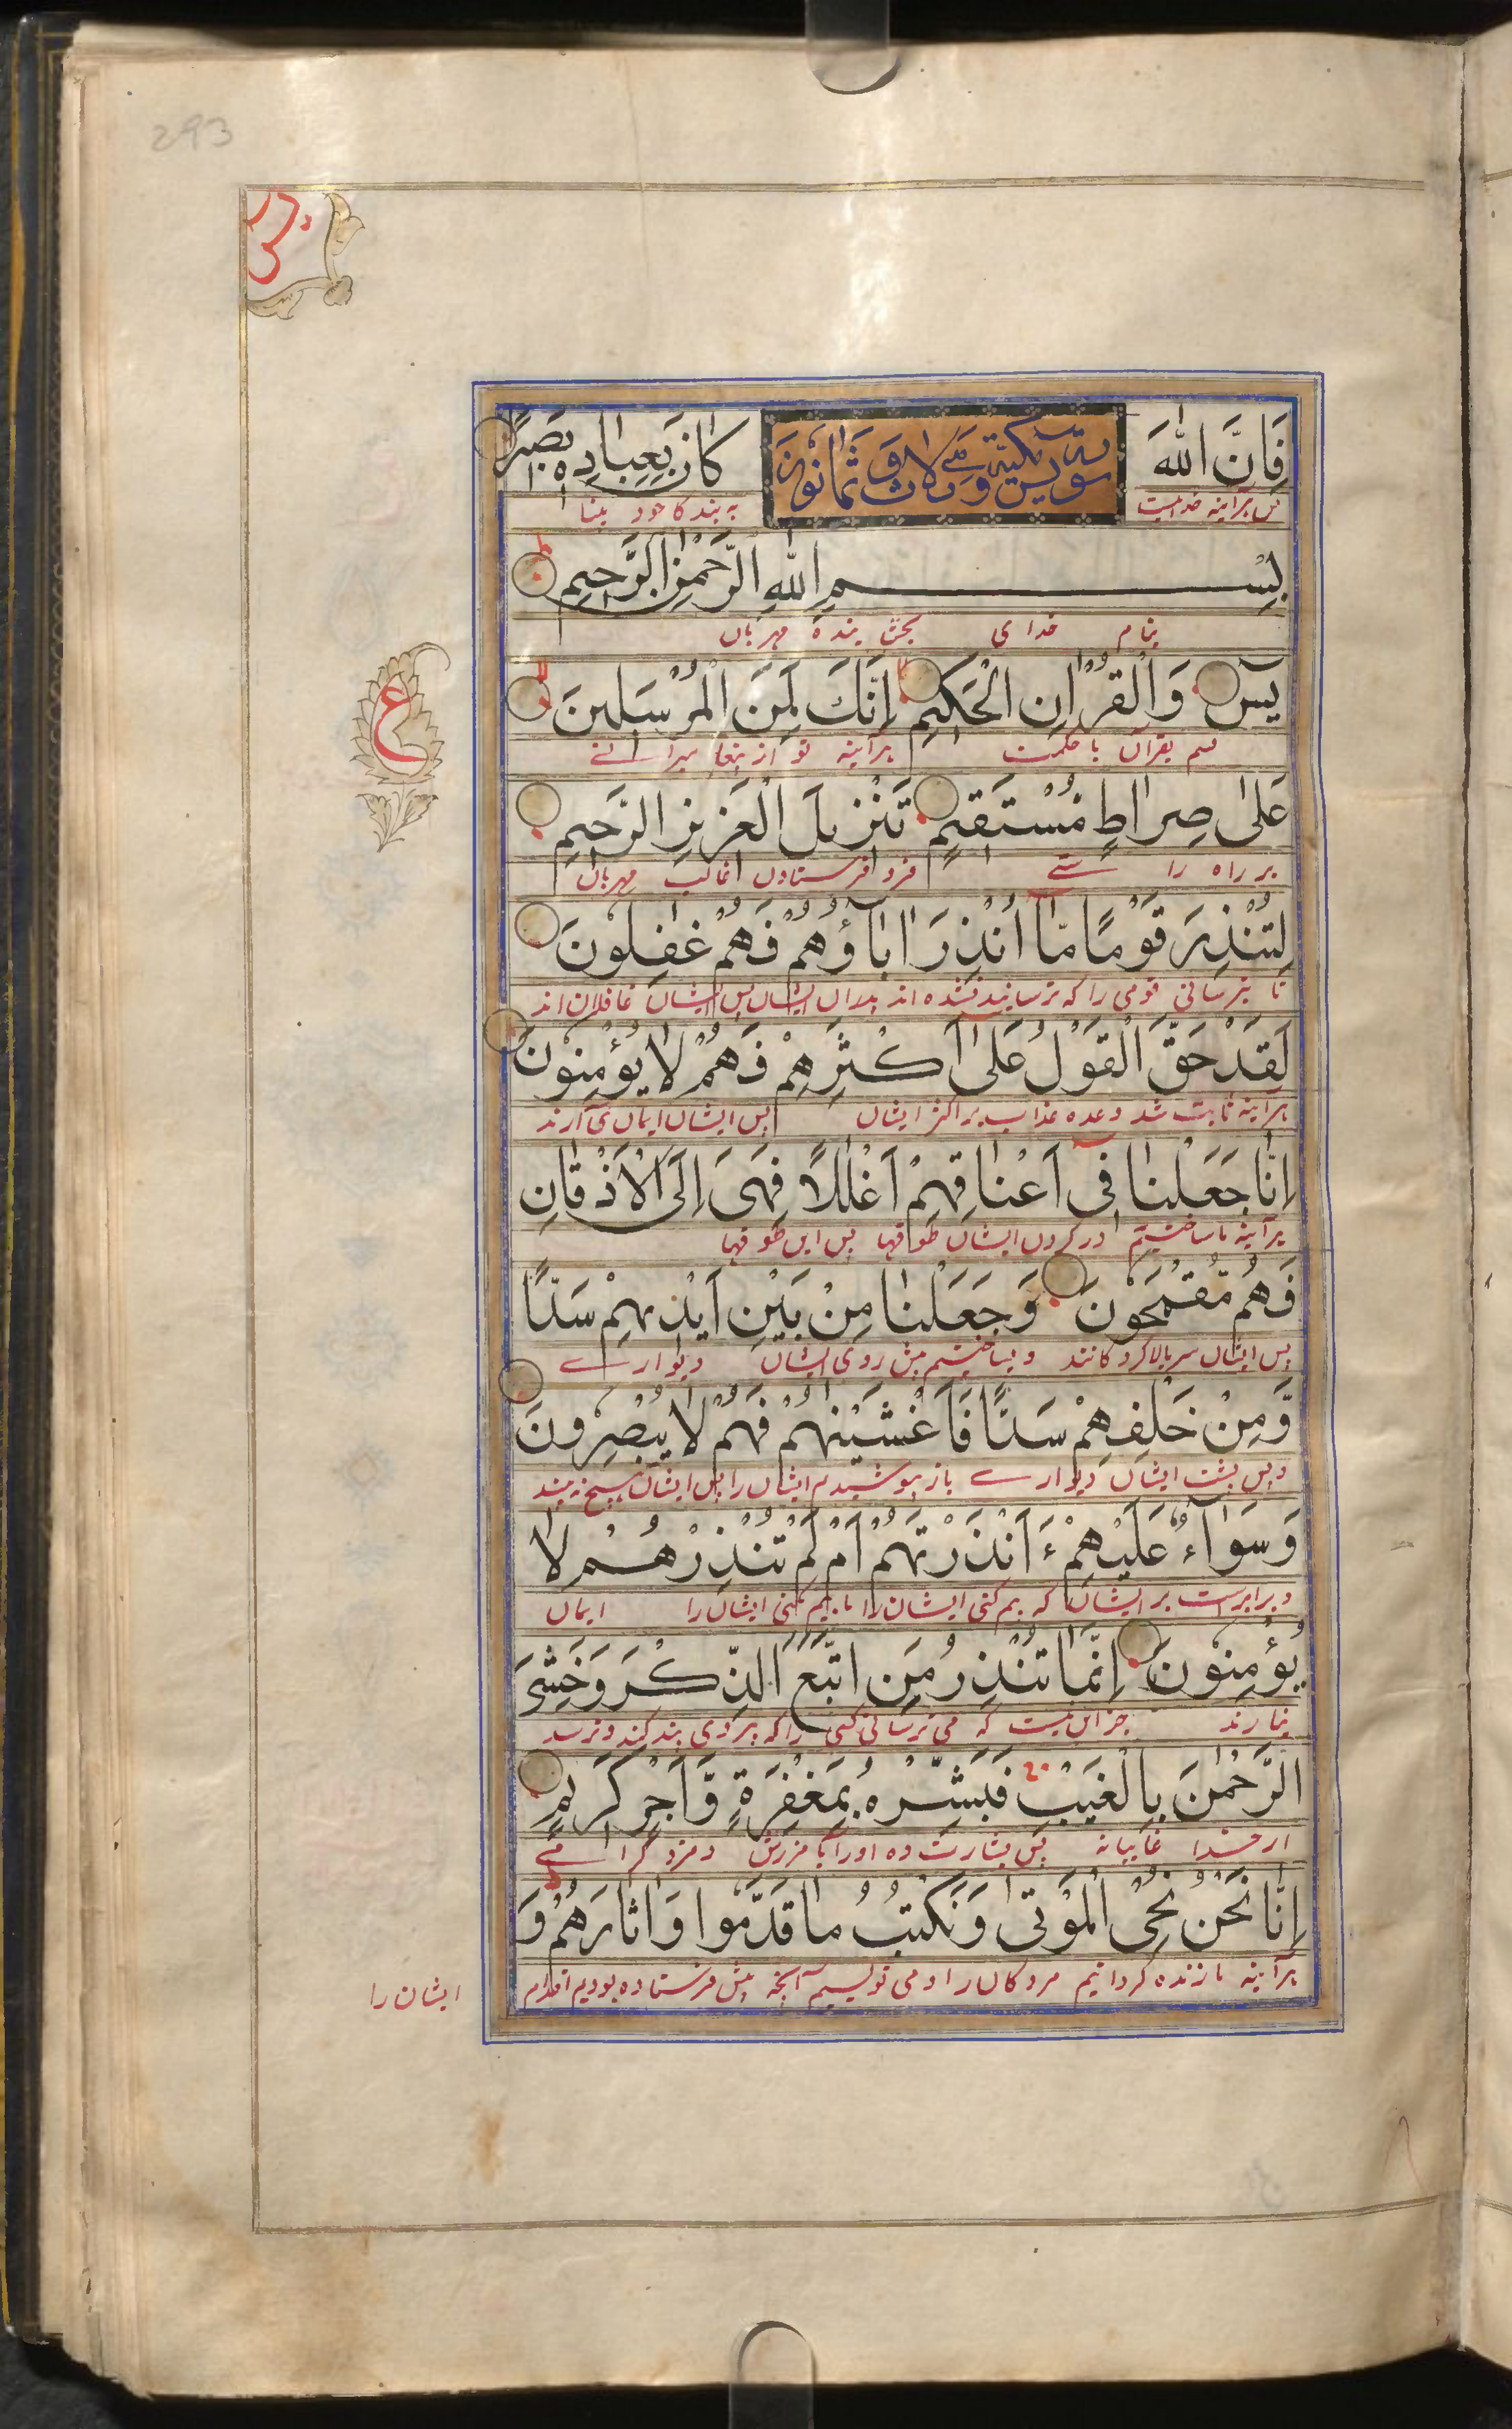 293
يس
فَاِنَّ اللّٰهَ كَانَ بِعِبَادِهٖ بَصِيْرًا
سورة يس مكية وهي ثلاث وثمانون
پس هرآینه خداست به بندکا خود بینا
بِسْمِ اللّٰهِ الرَّحْمٰنِ الرَّحِيْمِ
بنام خدای بخشاینده مهربان
يٰسٓ وَالْقُرْاٰنِ الْحَكِيْمِ اِنَّكَ لَمِنَ الْمُرْسَلِيْنَ
ع
قسم بقرآن با حکمت هرآینه تو از پیغامبرانے
عَلٰى صِرَاطٍ مُّسْتَقِيْمٍ تَنْزِيْلَ الْعَزِيْزِ الرَّحِيْمِ
بر راه راستے فرو فرستادن غالب مهربان
لِتُنْذِرَ قَوْمًا مَّٓا اُنْذِرَ اٰبَآؤُهُمْ فَهُمْ غٰفِلُوْنَ
تا بترسانی قومی را که ترسانیده نشده اند پدران ایشان پس ایشان غافلان اند
لَقَدْ حَقَّ الْقَوْلُ عَلٰٓى اَكْثَرِهِمْ فَهُمْ لَا يُؤْمِنُوْنَ
هرآینه ثابت شد وعده عذاب بر اکثر ایشان پس ایشان ایمان نمی آرند
اِنَّا جَعَلْنَا فِيْٓ اَعْنَاقِهِمْ اَغْلٰلًا فَهِيَ اِلَى الْاَذْقَانِ
هرآینه ما ساختیم در کردن ایشان طوقها پس این طوقها
فَهُمْ مُّقْمَحُوْنَ وَجَعَلْنَا مِنْ بَيْنِ اَيْدِيْهِمْ سَدًّا
پس ایشان سر بالا کردکانند و بساختیم پیش روی ایشان دیوارے
وَّمِنْ خَلْفِهِمْ سَدًّا فَاَغْشَيْنٰهُمْ فَهُمْ لَا يُبْصِرُوْنَ
و پس پشت ایشان دیوارے باز پوشیدیم ایشان را پس ایشان هیچ نه بینند
وَسَوَآءٌ عَلَيْهِمْ ءَاَنْذَرْتَهُمْ اَمْ لَمْ تُنْذِرْهُمْ لَا
و برابرست بر ایشان که بیم کنی ایشان را یا بیم نکنی ایشان را ایمان
يُؤْمِنُوْنَ اِنَّمَا تُنْذِرُ مَنِ اتَّبَعَ الذِّكْرَ وَخَشِيَ
نیارند جز این نیست که می ترسانی کسی را که پیروی پند کند و ترسد
الرَّحْمٰنَ بِالْغَيْبِ فَبَشِّرْهُ بِمَغْفِرَةٍ وَّاَجْرٍ كَرِيْمٍ
از خدا غایبانه پس بشارت ده او را بآمرزش و مزد کرامے
اِنَّا نَحْنُ نُحْيِ الْمَوْتٰى وَنَكْتُبُ مَا قَدَّمُوْا وَاٰثَارَهُمْ وَ
هرآینه ما زنده کردانیم مردکان را و می نویسیم آنچه پیش فرستاده بودیم اقدام
ایشان را